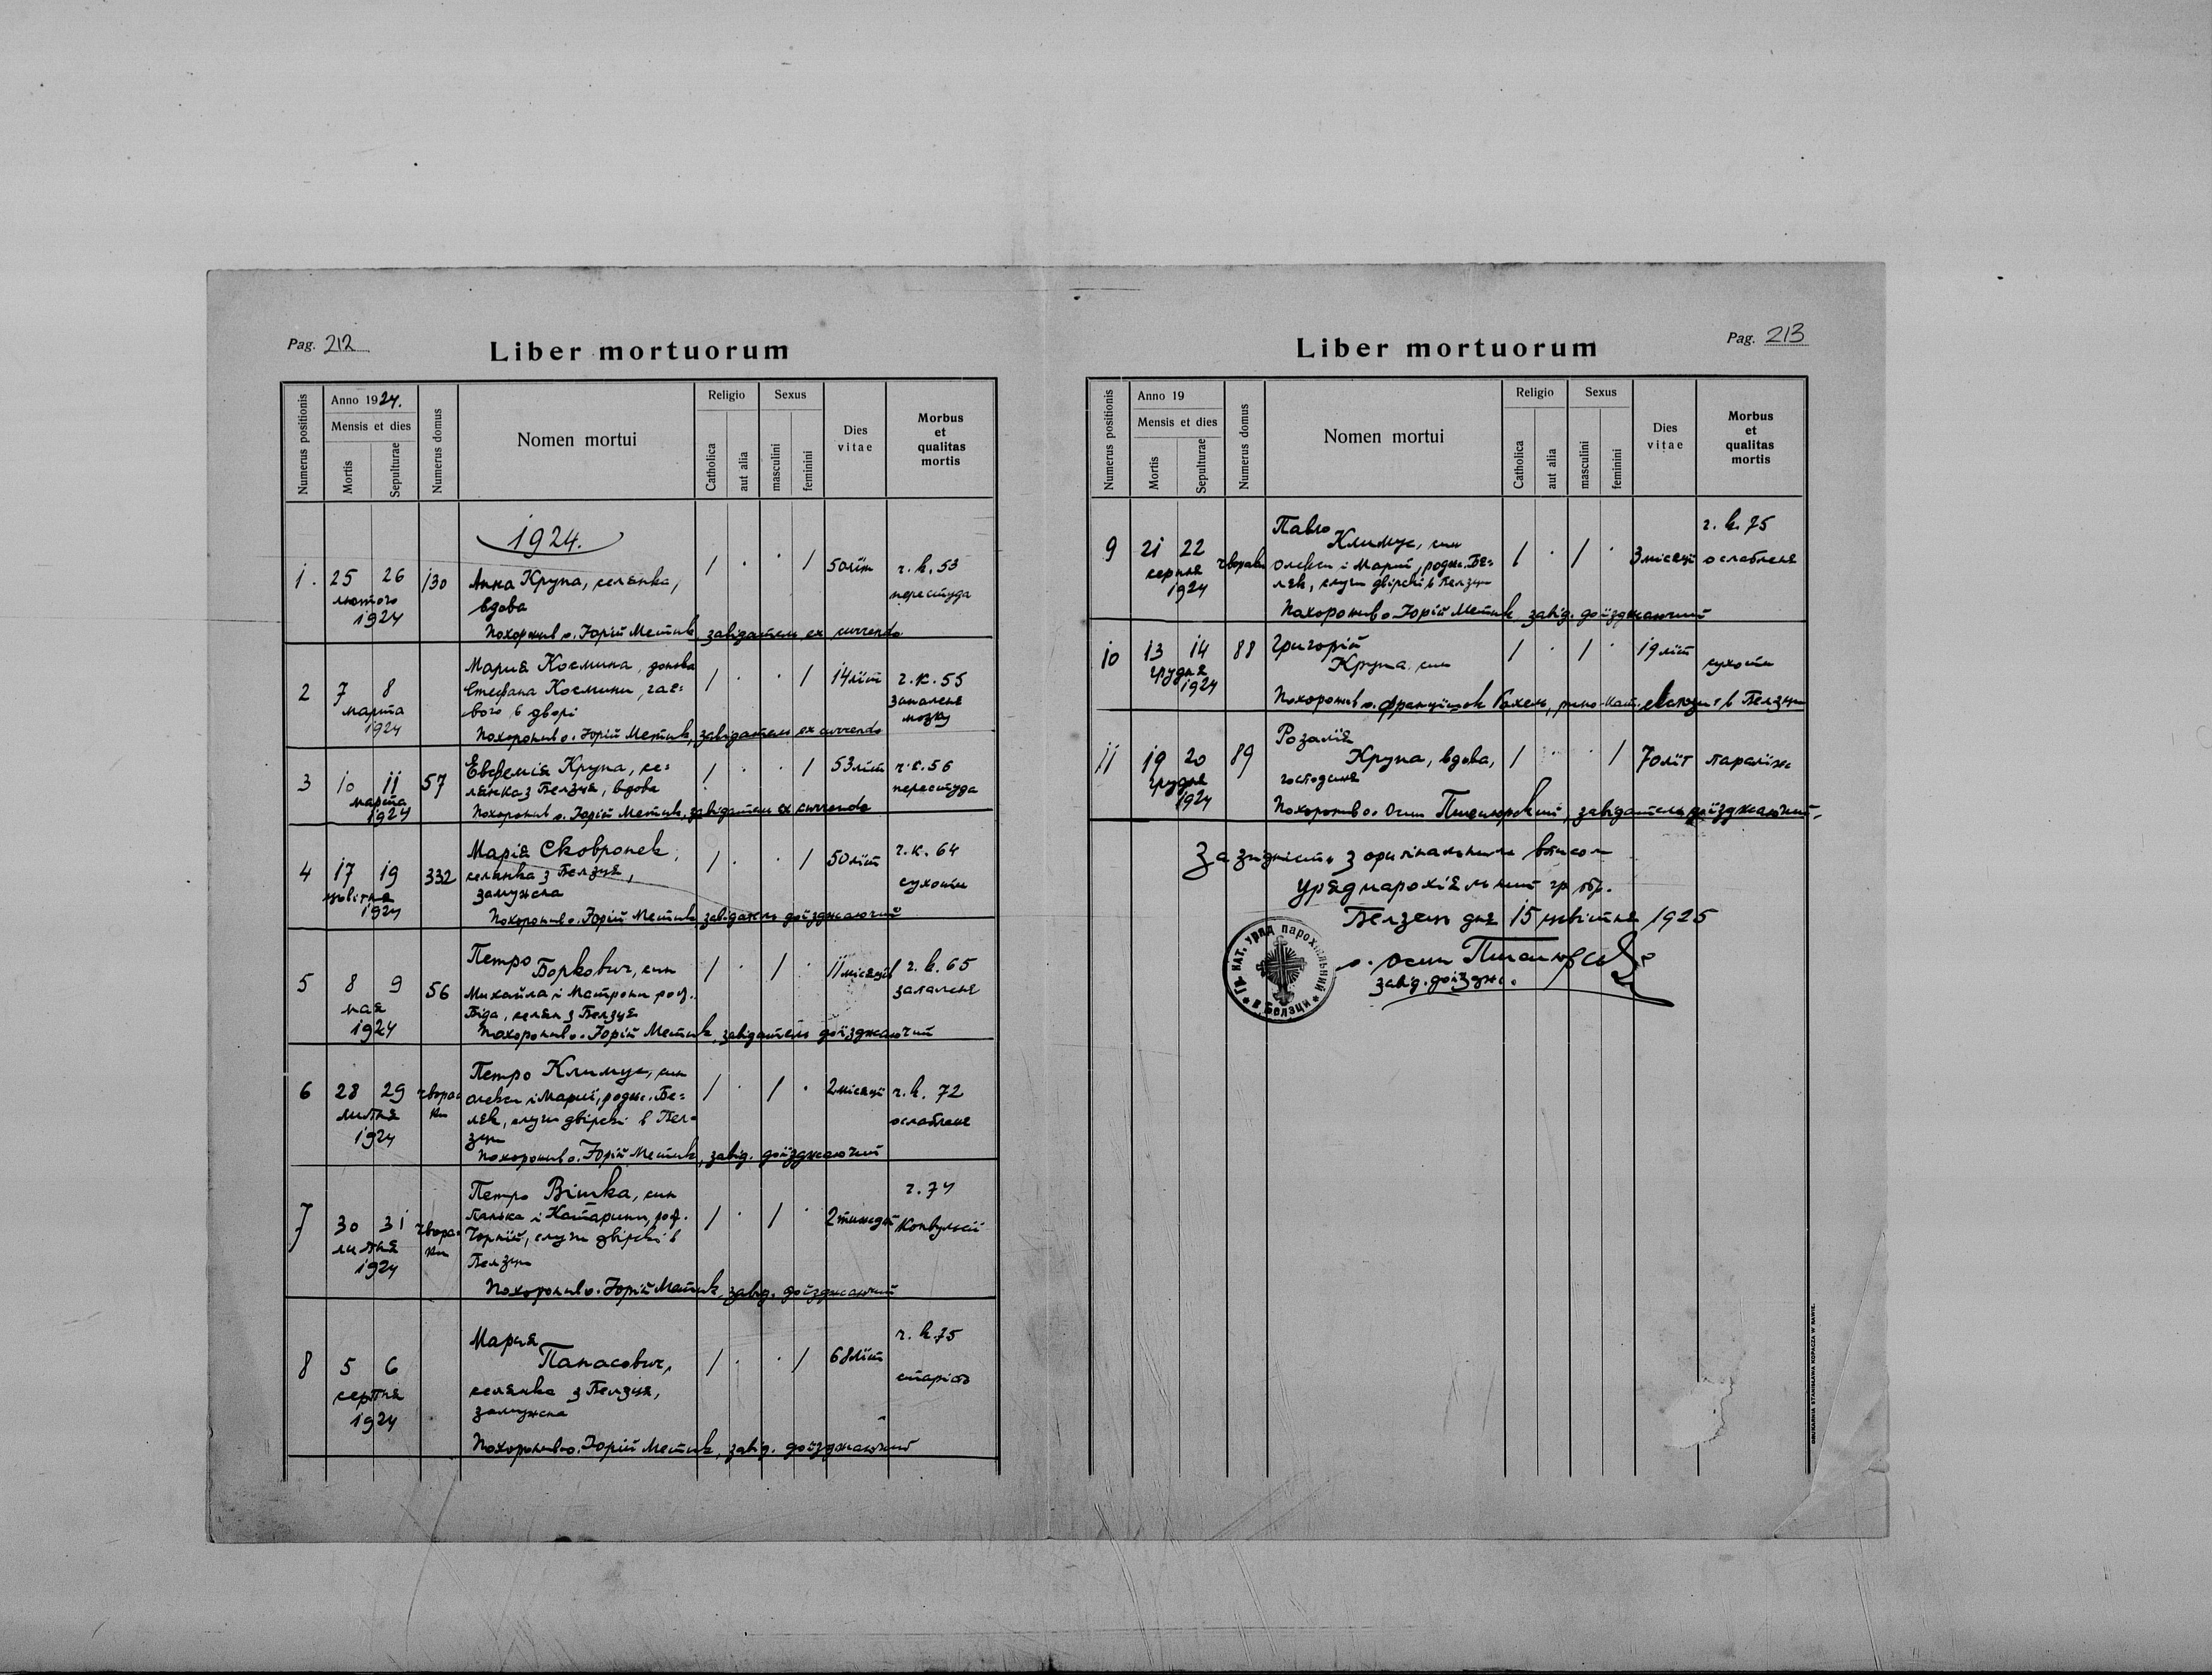 Pag. 212
Liber mortuorum
Numerus positionis
Anno 1924.
Mensis et dies
Mortis
Sepulturae
Numerus domus
Nomen mortui
Religio
Catholica
aut alia
Sexus
masculini
feminini
Dies vitae
Morbus et qualitas mortis
1924.
1. 25 26 130 Анна Крупа, селянка, / . . / 50 літ ч. к. 53
лютого вдова переступда
1924
Похоронив о. Юрій Метик, завідатель ex currendo
2 7 8 Мария Космина, донька / . . / 14 літ ч. к. 55
марта Стефана Космини, гає- запаленє
1924 вого в дворі мозку
Похоронив о. Юрій Метик, завідатель ex currendo
3 10 11 57 Евфемія Крупа, се- / . . / 53 літ ч. к. 56
марта лянка з Белзця, вдова
1924 Похоронив о. Юрій Метик, завідатель ex currendo
4 17 19 332 Марія Сковронек, / . . / 50 літ ч. к. 64
цвітня селянка з Белзця, сухоти
1924 замужна
Похоронив о. Юрій Метик завідатель доїзджаючий
5 8 9 56 Петро Боркович, син / . / . 11 місяців ч. к. 65
мая Михайла і Матрони род. запаленє
1924 Біда, селян з Белзця
Похоронив о. Юрій Метик, завідатель доїзджаючий
6 28 29 чвора- Петро Климус, син / . / . 2 місяці ч. к. 72
липня ки Олекси і Марії, родж. Бе- ослабленє
1924 ляк, слуги двірскі в Бел-
зци
Похоронив о. Юрій Метик, завід. доїзджаючий
7 30 31 чвора- Петро Вішка, син / . / . 2 тижді ч. 74
липня ки Панька і Катарини, род. конвульсії
1924 Чорній, слуги двірскі в
Белзци
Похоронив о. Юрій Метик, завід. доїзджаючий
8 5 6 Мария / . . / 68 літ ч. к. 75
серпня Панасович, старість
1924 селянка з Белзця,
замужна
Похоронив о. Юрій Метик, завід. доїзджаючий
Pag. 213
Liber mortuorum
Numerus positionis
Anno 19
Mensis et dies
Mortis
Sepulturae
Numerus domus
Nomen mortui
Religio
Catholica
aut alia
Sexus
masculini
feminini
Dies vitae
Morbus et qualitas mortis
9 21 22 чвораки Павло / . / . 3 місяці ч. к. 75
серпня Климус, син ослабленє
1924 Олекси і Марії, родж. Бе-
ляк, слуги двірскі в Белзци
Похоронив о. Юрій Метик, завід. доїзджаючий
10 13 14 88 Григорій / . / . 19 літ сухоти
грудня Крупа, син
1924
Похоронив о. Францішок, римо-кат. в Белзци
11 19 20 89 Розалія / . . / 70 літ параліж
грудня Крупа, вдова,
1924 господиня
Похоронив о. Осип, завідатель доїзджаючий.
За згідність з оригінальним вписом
Уряд парохіяльний гр. обр.
Белзець дня 15 цвітня 1925
о. Осип
завід. доїздж.
ГР. КАТ. УРЯД ПАРОХІЯЛЬНИЙ в Белзци
DRUKARNIA STANISŁAWA KOPACZA W RAWIE.